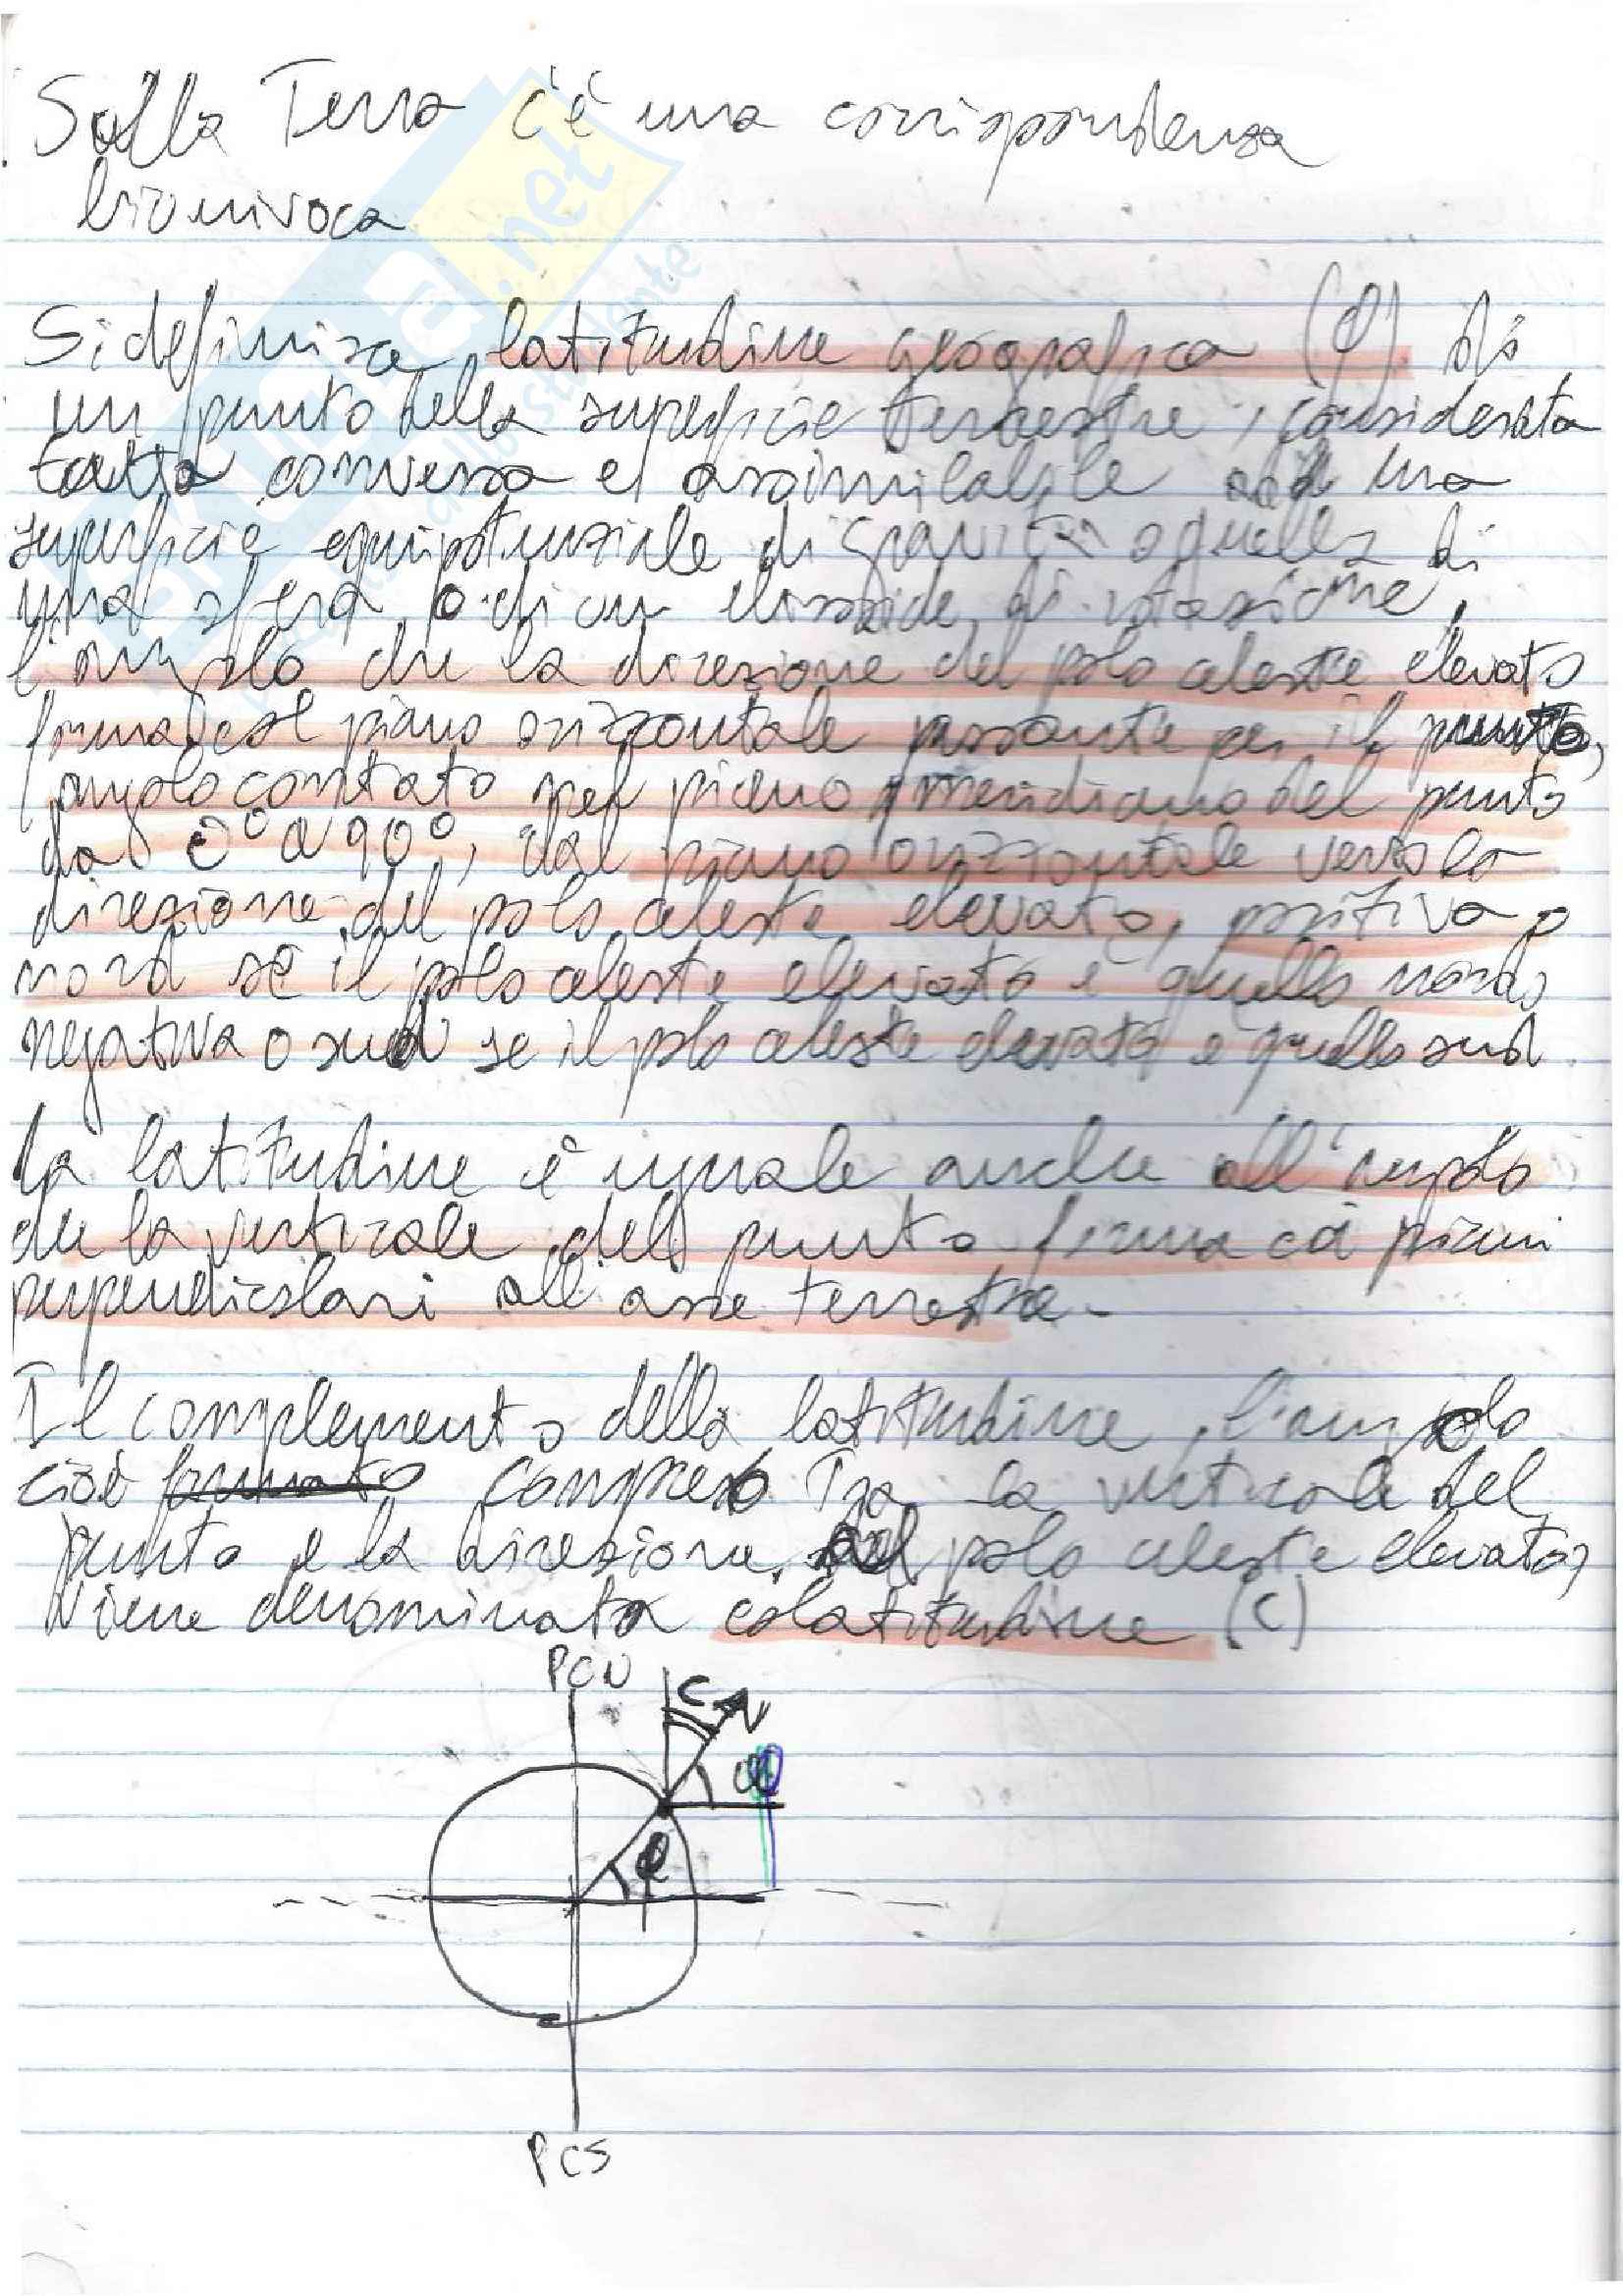 Sulla Terra c'è una corrispondenza
biunivoca
Si definisce latitudine geografica (φ) di
un punto della superficie terrestre, considerata
tutta convessa e assimilabile ad una
superficie equipotenziale di gravità o quella di
una sfera o di un elissoide di rotazione,
l'angolo che la direzione del polo celeste elevato
forma col piano orizzontale passante per il punto,
angolo contato nel piano meridiano del punto
da 0° a 90°, dal piano orizzontale verso la
direzione del polo celeste elevato, positiva o
nord se il polo celeste elevato è quello nord,
negativa o sud se il polo celeste elevato è quello sud
La latitudine è uguale anche all'angolo
che la verticale del punto forma coi piani
perpendicolari all'asse terrestre.
Il complemento della latitudine, l'angolo
cioè compreso tra la verticale del
punto e la direzione del polo celeste elevato,
viene denominata colatitudine (C)
PCN
C
V
φ
φ
PCS
.net